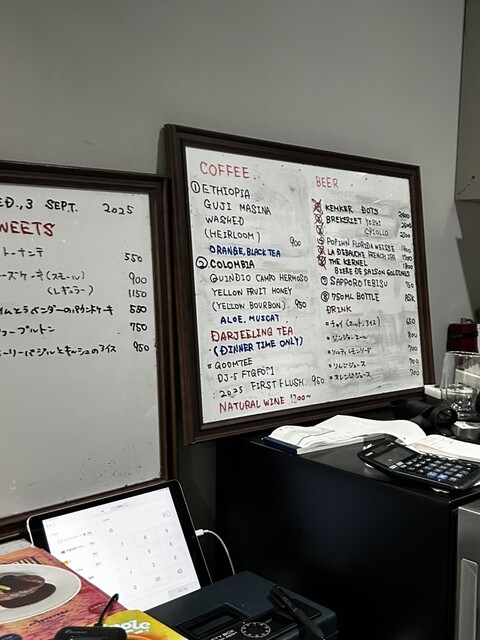 ED., 3 SEPT. 2025
WEETS
550
ーズケーキ(スモール) 900
(レギュラー) 1150
イムとラベンダーのパウンドケーキ 550
750
950
COFFEE
① ETHIOPIA
GUJI MASINA
WASHED
(HEIRLOOM) 900
ORANGE, BLACK TEA
② COLOMBIA
QUINDIO CAMPO HERMOSO
YELLOW FRUIT HONEY
(YELLOW BOURBON) 950
ALOE, MUSCAT
DARJEELING TEA
(DINNER TIME ONLY)
GOOMTEE
DJ-5
2025 FIRST FLUSH 950
NATURAL WINE 1200~
BEER
KEMKER
BREKERIET YOSHI
POPIHN FLORIDA WEISSE
LA DEBAUCHE FRENCH IPA
THE KERNEL
BIERE DE SAISON
⑦ SAPPORO YEBISU 750
⑧ 750ML BOTTLE ASK
DRINK
チャイ(ホット、アイス)
ジンジャーエール
ソルティレモンソーダ
リンゴジュース
オレンジジュース